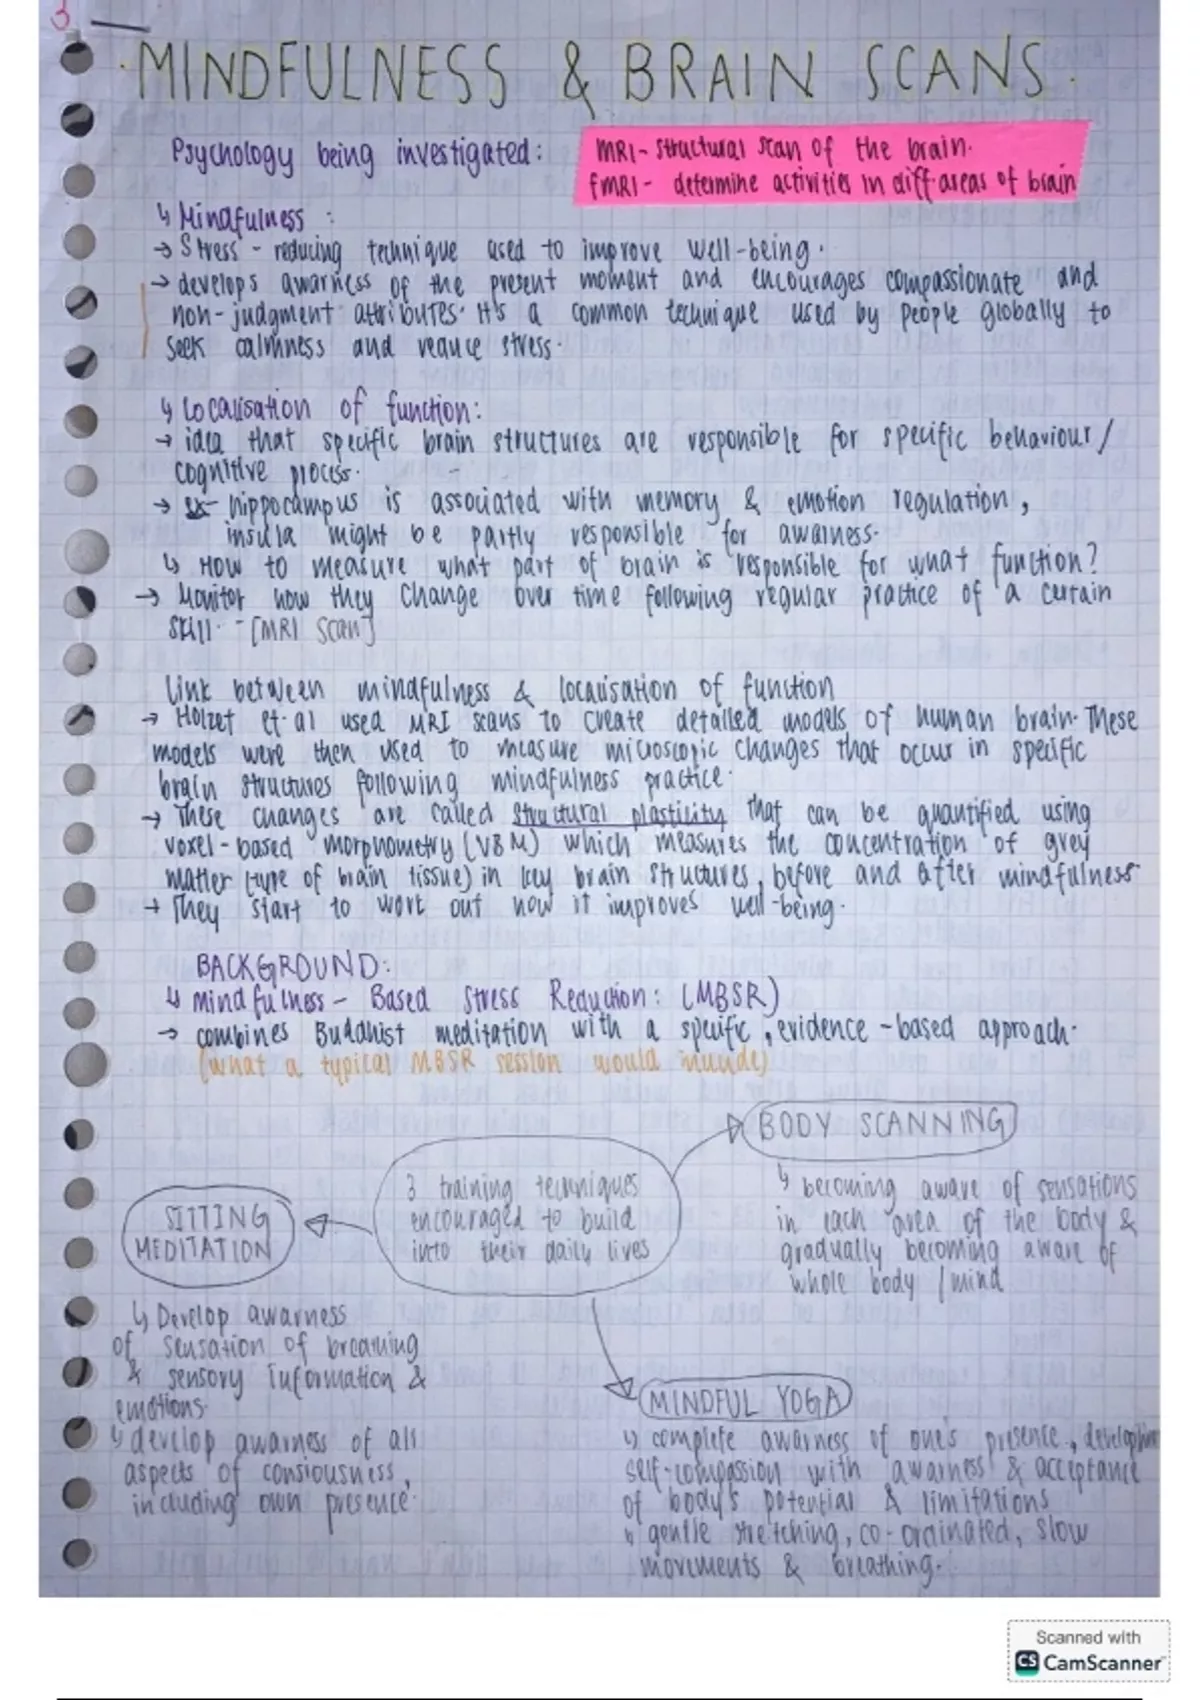 3
MINDFULNESS & BRAIN SCANS.
Psychology being investigated:
MRI - structural scan of the brain.
fMRI - determine activities in diff. areas of brain
↳ Mindfulness :
→ Stress - reducing technique used to improve well-being.
→ develops awarness of the present moment and encourages compassionate and
non-judgment attributes. It's a common technique used by people globally to
seek calmness and reduce stress.
↳ Localisation of function:
→ idea that specific brain structures are responsible for specific behaviour/
cognitive process.
→ ex- hippocampus is associated with memory & emotion regulation,
insula might be partly responsible for awarness.
↳ How to measure what part of brain is responsible for what function?
→ Monitor how they change over time following regular practice of a certain
skill. - [MRI scan]
Link between mindfulness & localisation of function
→ Holzet et. al used MRI scans to create detailed models of human brain. These
models were then used to measure microscopic changes that occur in specific
brain structures following mindfulness practice.
→ These changes are called structural plastility that can be quantified using
voxel-based morphometry (VBM) which measures the concentration of grey
matter (type of brain tissue) in key brain structures, before and after mindfulness
→ They start to work out how it improves well-being.
BACKGROUND:
↳ mindfulness - Based Stress Reduction: (MBSR)
→ combines Buddhist meditation with a specific, evidence-based approach.
(what a typical MBSR session would include)
BODY SCANNING
3 training techniques
encouraged to build
into their daily lives
SITTING
MEDITATION
↳ becoming aware of sensations
in each area of the body &
gradually becoming aware of
whole body / mind
↳ Develop awarness
of sensation of breathing
& sensory information &
emotions.
↳ develop awarness of all
aspects of consiousness,
including own presence.
MINDFUL YOGA
↳ complete awarness of one's presence, developing
self-compassion with awarness & acceptance
of body's potential & limitations
↳ gentle stretching, co-ordinated, slow
movements & breathing.
Scanned with
CS CamScanner